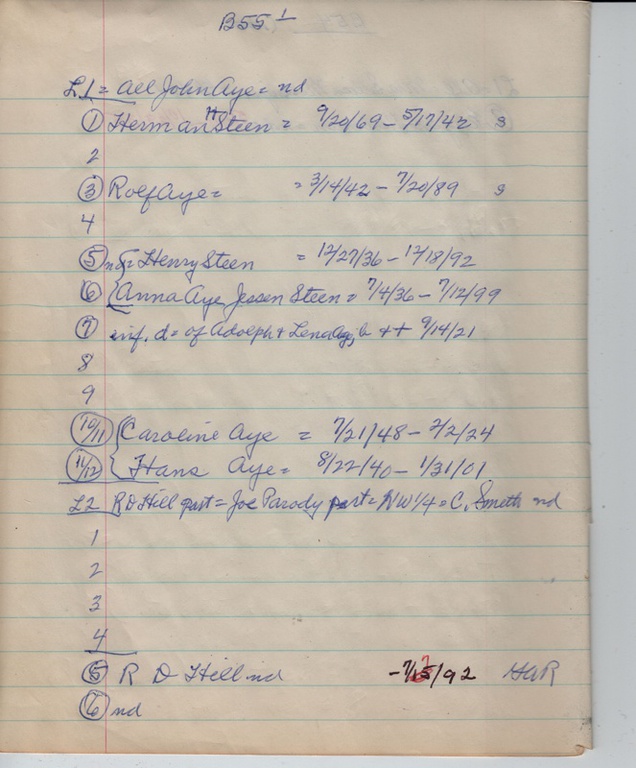 B55 1
L1 = all John Aye = nd
① Herman H Steen = 9/20/69 - 5/17/42 s
2
③ Rolf Aye = = 3/14/42 - 7/20/89 s
4
⑤ Henry Steen = 12/27/36 - 12/18/92
⑥ {Anna Aye Jessen Steen = 7/4/36 - 7/12/99
⑦ inf. d = of Adolph + Lena Aye, b ++ 9/14/21
8
9
10/11 {Caroline Aye = 7/21/48 - 2/2/24
11/12 {Hans Aye = 8/22/40 - 1/31/01
L2 R D Hill part = Joe Parody part = NW 1/4 = C. Smeth nd
1
2
3
4
⑤ R D Hill nd - 7/ /92 HAR
⑥ nd